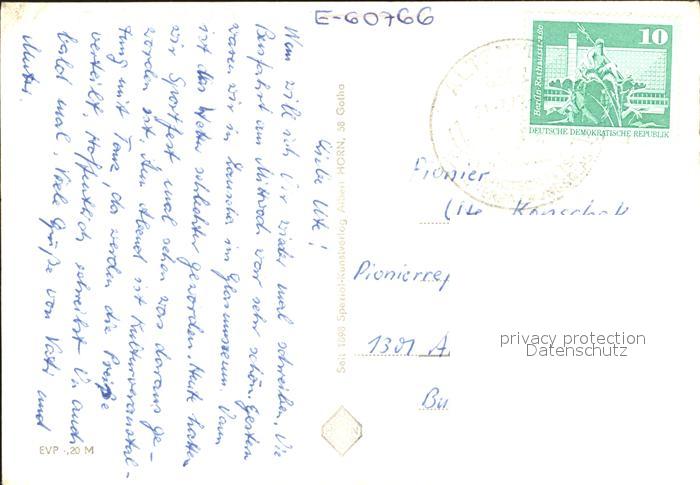 E-60766
Liebe Ute!
Nun will ich Dir wieder mal schreiben. Die
Busfahrt am Mittwoch war sehr schön. Gestern
waren wir in Lauscha im Glasmuseum. Nun
ist das Wetter schlechter geworden. Heute hatten
wir Sportfest mal sehen was daraus ge-
worden ist. Am Abend ist Kulturveranstal-
tung mit Tanz, da werden die Preise
verteilt. Hoffentlich schreibst Du auch
bald mal. Viele Grüße von Vati und
Mutti.
EVP -,20 M
Seit 1898 Spezial-Kunstverlag Albert HORN, 58 Gotha
10
Berlin-Rathausstraße
DEUTSCHE DEMOKRATISCHE REPUBLIK
Pionier
Ute
Pionierrep
1301 A
Bu
privacy protection
Datenschutz